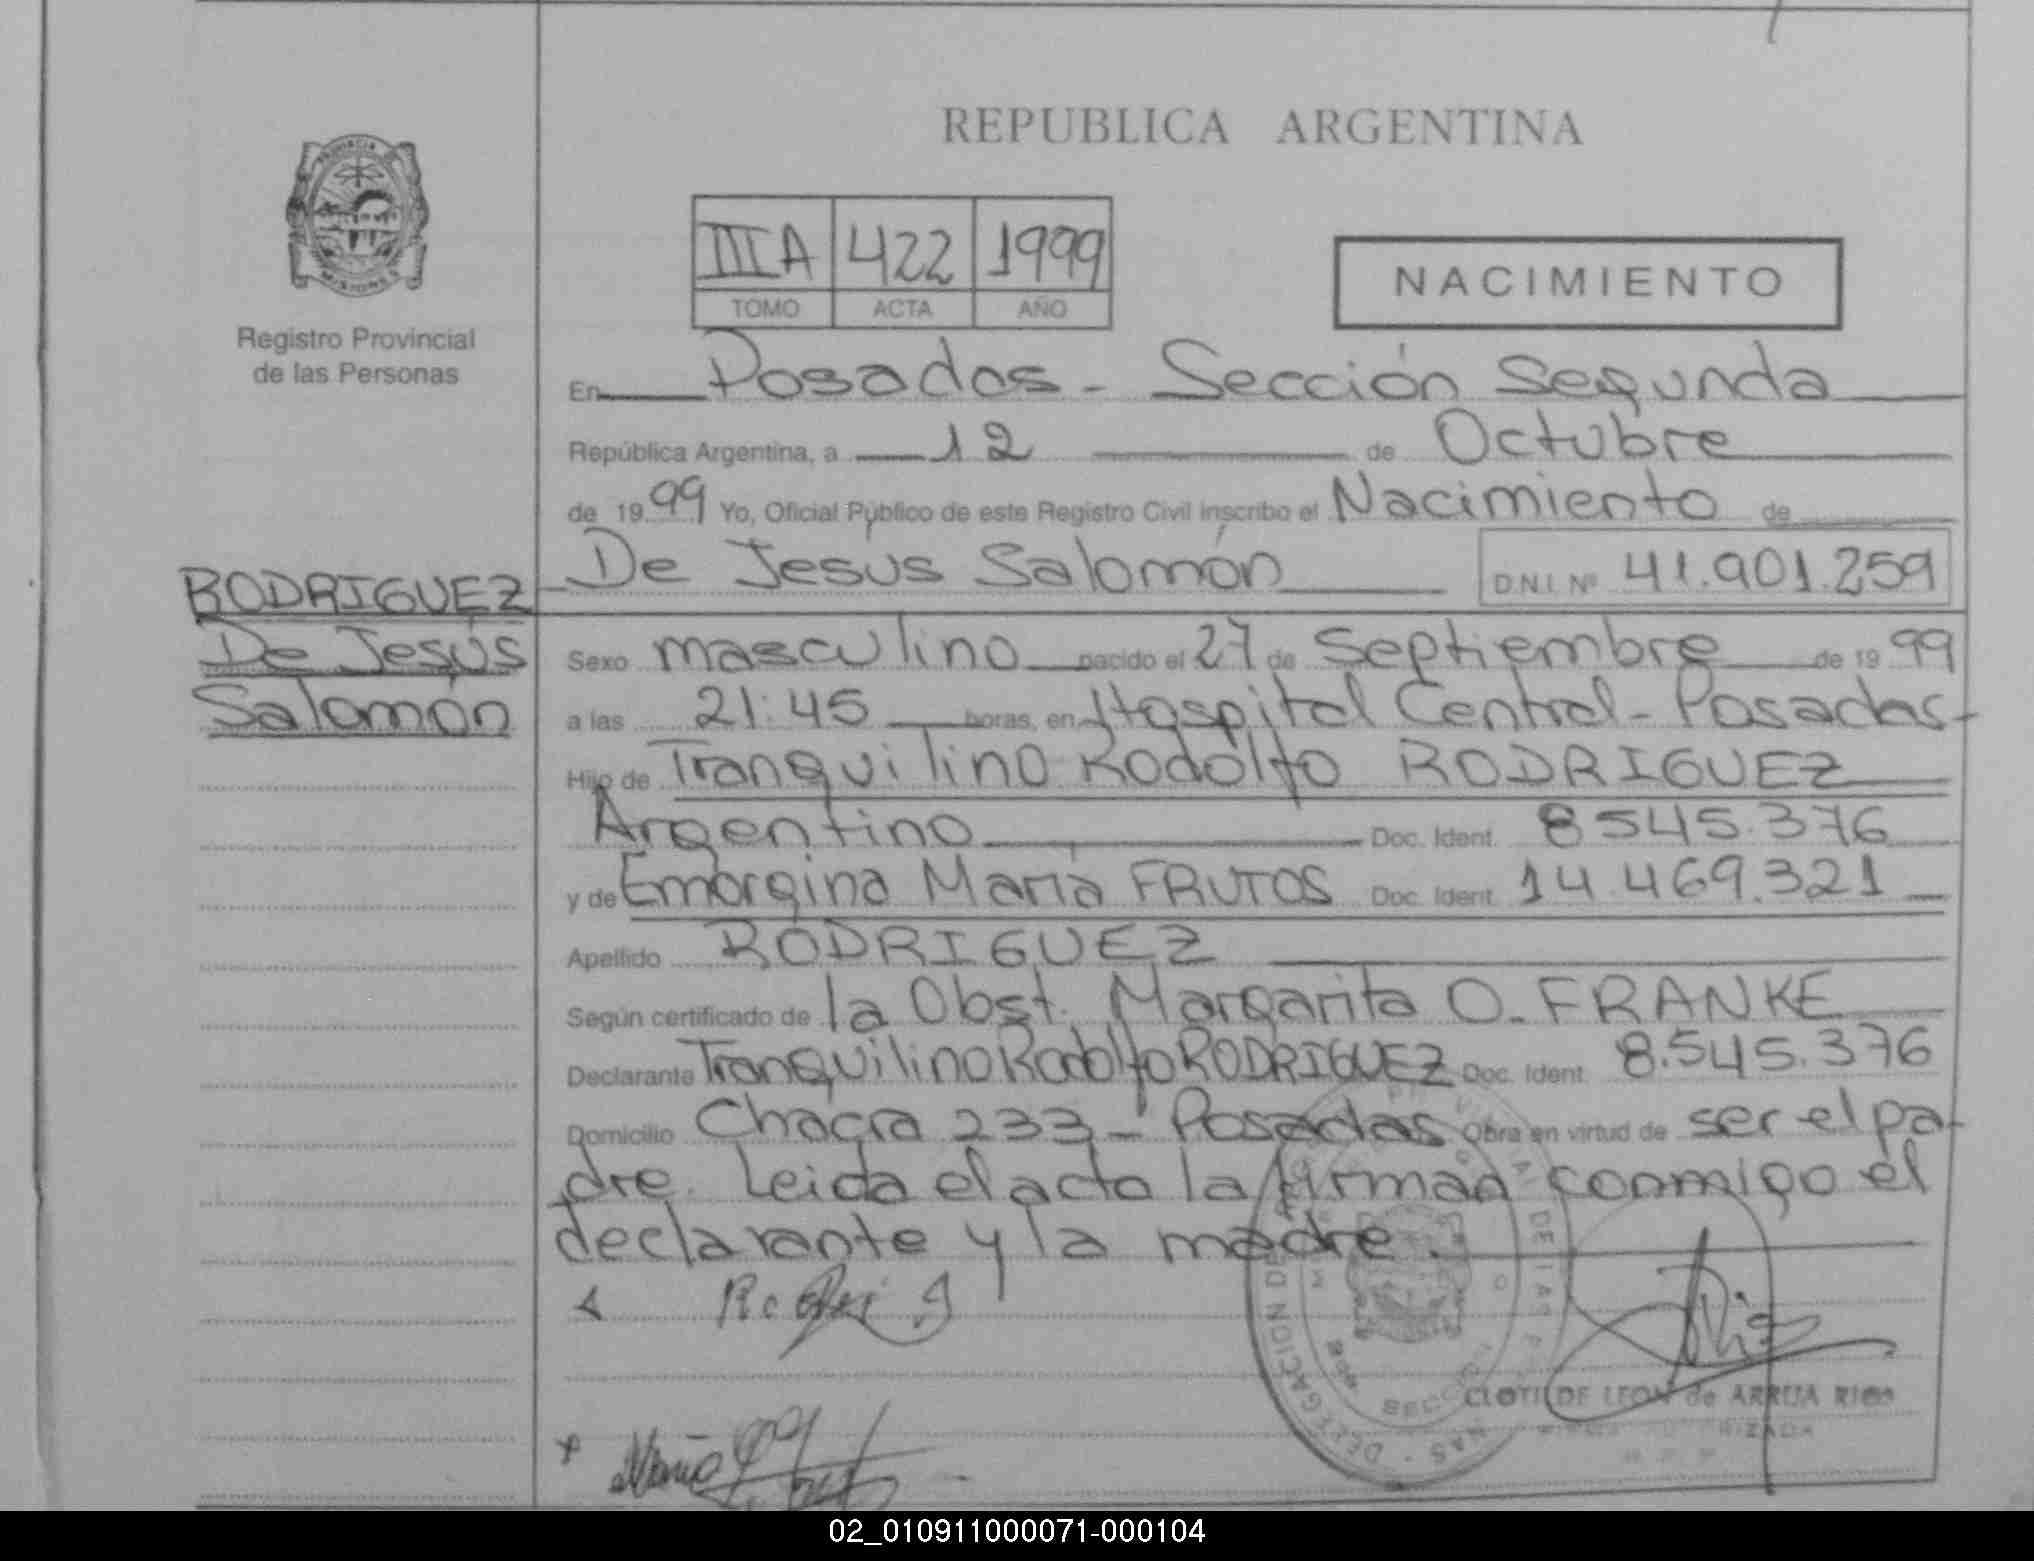 REPUBLICA ARGENTINA
PROVINCIA DE
MISIONES
Registro Provincial
de las Personas
IIIA 422 1999
TOMO ACTA AÑO
NACIMIENTO
En Posadas - Sección Segunda
República Argentina, a 12 de Octubre
de 1999 Yo, Oficial Público de este Registro Civil inscribo el Nacimiento de
De Jesús Salomón D.N.I. Nº 41.901.259
RODRIGUEZ
De Jesús
Salomón
Sexo masculino nacido el 27 de Septiembre de 1999
a las 21:45 horas, en Hospital Central - Posadas-
Hijo de Tranquilino Rodolfo RODRIGUEZ
Argentino Doc. Ident. 8545.376
y de Emorgina María FRUTOS Doc. Ident. 14.469.321
Apellido RODRIGUEZ
Según certificado de la Obst. Margarita O. FRANKE
Declarante Tranquilino Rodolfo RODRIGUEZ Doc. Ident. 8.545.376
Domicilio Chacra 233 - Posadas Obra en virtud de ser el pa-
dre. Leida el acta la firman conmigo el
declarante y la madre.
CLOTILDE LEON de ARRUA RIOS
02_010911000071-000104